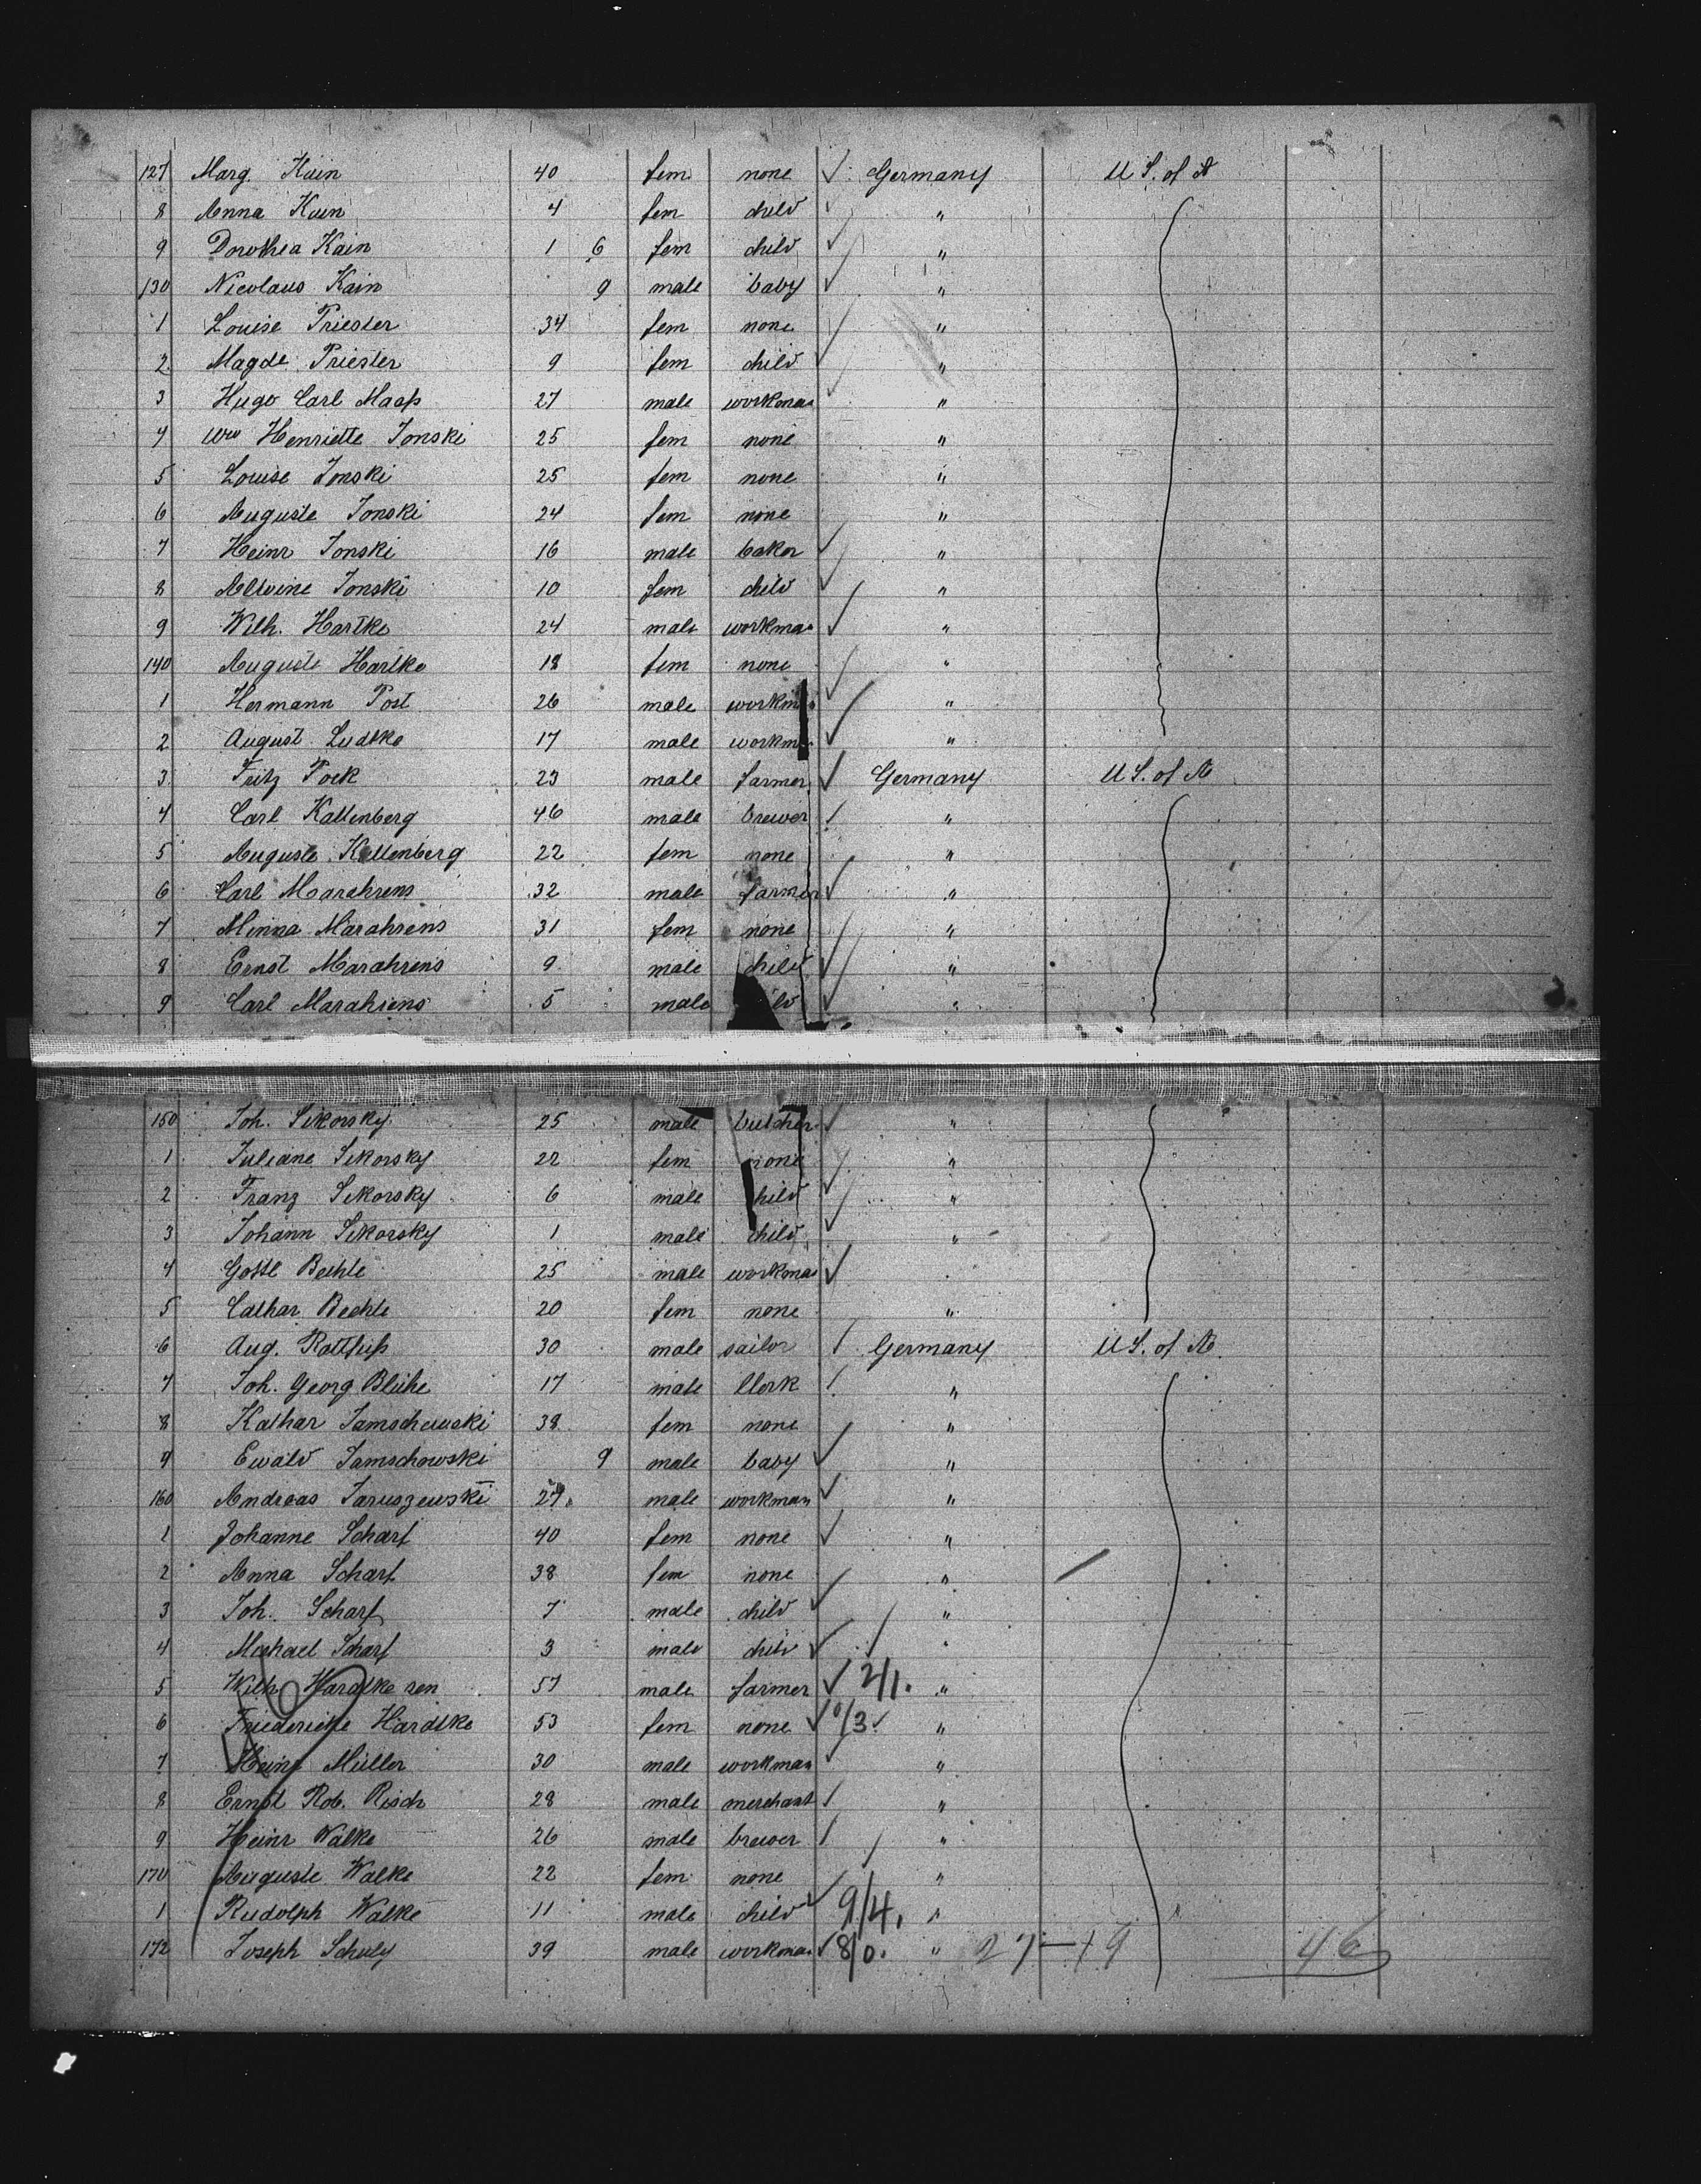 127 Marg. Kain 40 fem. none Germany U S. of A
8 Anna Kain 4 fem child "
9 Dorothea Kain 1 6 fem child "
130 Nicolaus Kain 9 male baby "
1 Louise Priester 34 fem none "
2 Magde Priester 9 fem child "
3 Hugo Carl Maass 27 male workman "
4 Henriette Jonski 25 fem none "
5 Louise Jonski 25 fem none "
6 Auguste Jonski 24 fem none "
7 Heinr Jonski 16 male baker "
8 Alwine Jonski 10 fem child "
9 Wilh. Hartke 24 male workman "
140 Auguste Hartke 18 fem none "
1 Hermann Post 26 male workman "
2 August Ludtke 17 male workman "
3 Fritz 23 male farmer Germany U S. of A
4 Carl Kallenberg 46 male brewer "
5 Auguste Kallenberg 22 fem none "
6 Carl Marahrens 32 male farmer "
7 Minna Marahrens 31 fem none "
8 Ernst Marahrens 9 male child "
9 Carl Marahrens 5 male ild "
150 Joh. Sikorsky 25 male butcher "
1 Juliane Sikorsky 22 fem none "
2 Franz Sikorsky 6 male hild "
3 Johann Sikorsky 1 male child "
4 Gottl Bechle 25 male workman "
5 Cathar Bechle 20 fem none "
6 Aug. 30 male sailor Germany U S. of A
7 Joh. Georg Blühe 17 male Clerk "
8 Kathar Jamschewski 38 fem none "
9 Ewald Jamschowski 9 male baby "
160 Andreas Jaruszewski male workman "
1 Johanne Scharf 40 fem none "
2 Anna Scharf 38 fem none "
3 Joh. Scharf 7 male child "
4 Michael Scharf 3 male child "
5 Wilh Hardtke sen 57 male farmer 2/1. "
6 Friederike Hardtke 53 fem none 0/3. "
7 Heinr Müller 30 male workman "
8 Ernst Rob. Risch 28 male merchant "
9 Heinr Walke 26 male brewer "
170 Auguste Walke 22 fem none "
1 Rudolph Walke 11 male child 9/4. "
172 Joseph Schuly 39 male workman 8/0. " 27 — 19 46